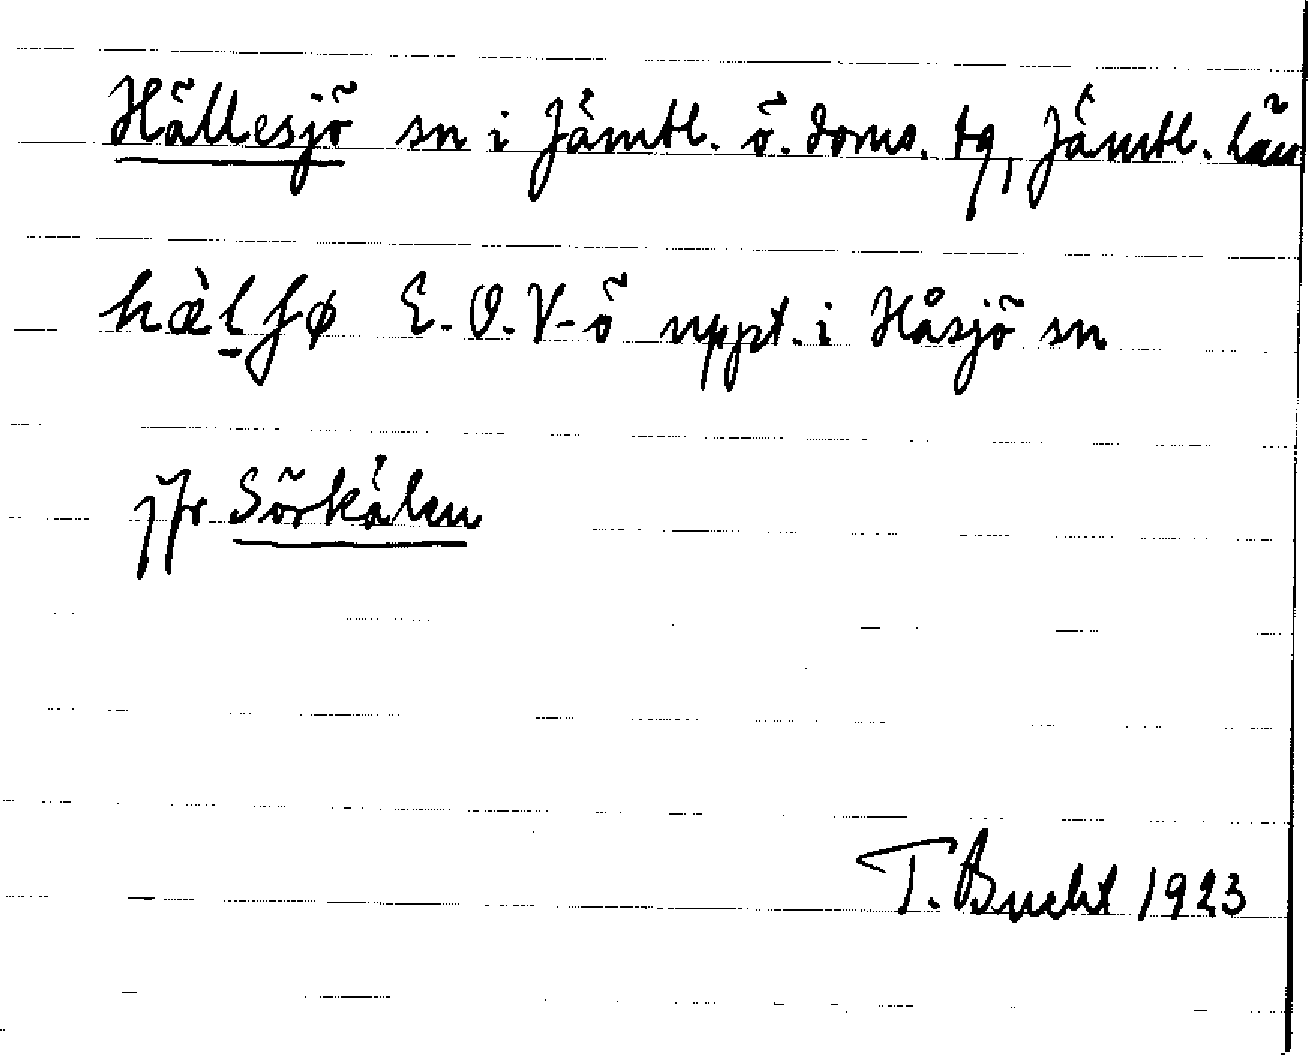 Hällesjö sn i Jämtl. ö. doms. tg, Jämtl. län
hæ̀l̠ʃø E. O. V-ö uppt. i Håsjö sn
jfr Sörkålen
T. Bucht 1923